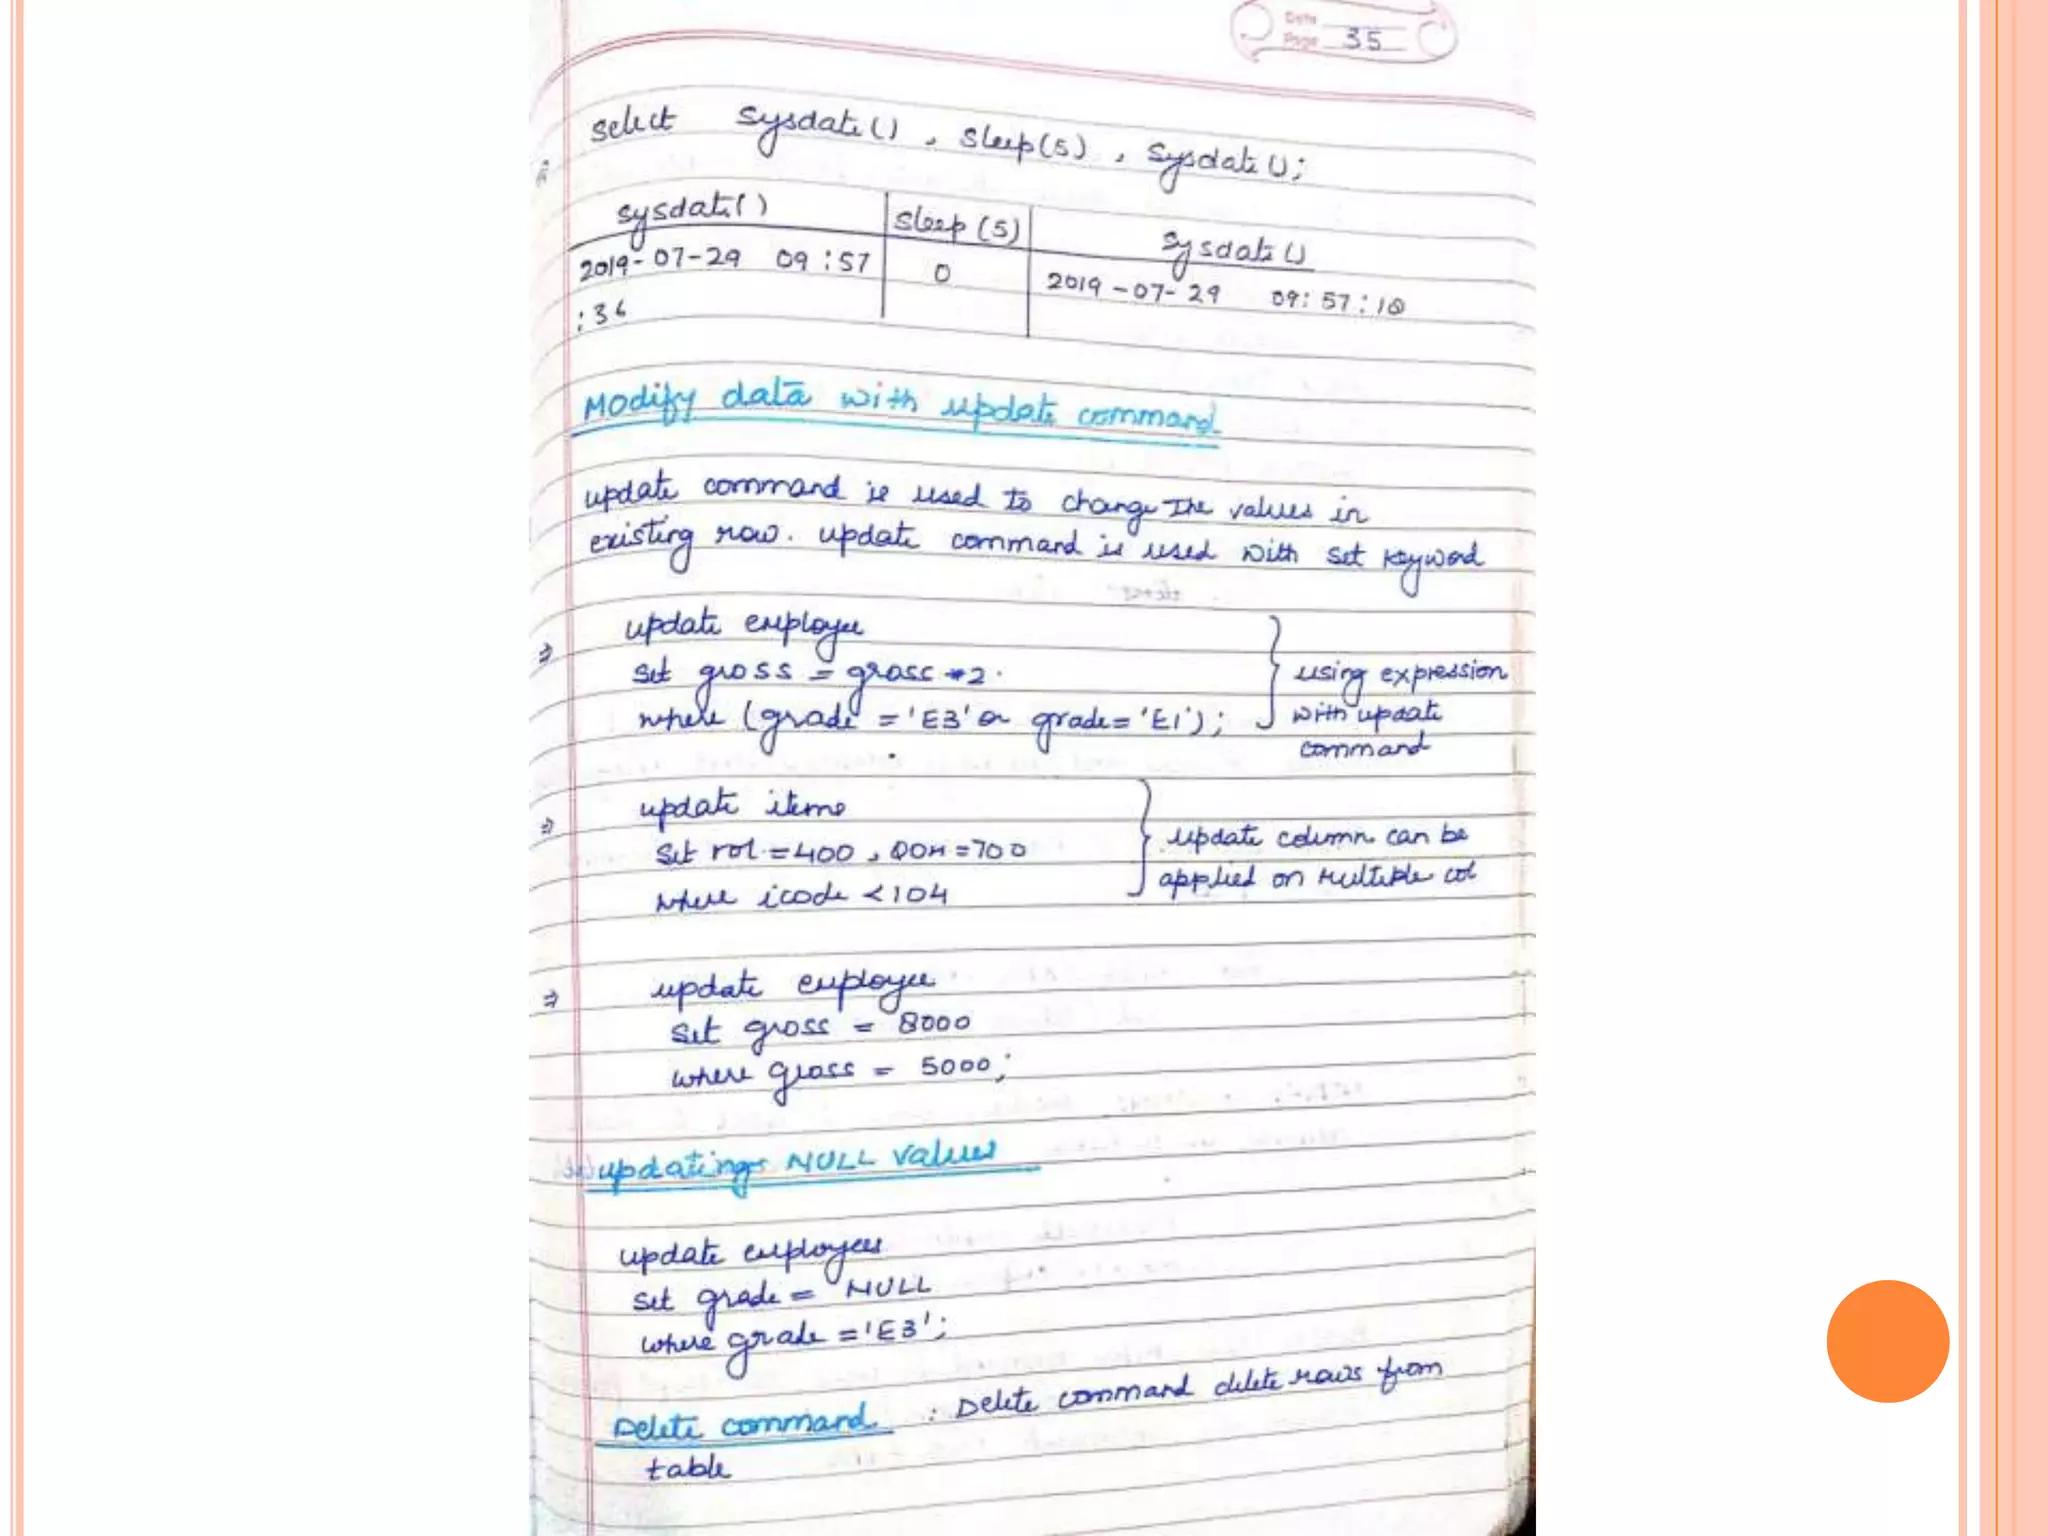 Date
Page 35
select sysdate() , sleep(5) , sysdate();
sysdate() sleep (5) sysdate()
2019-07-29 09:57 0 2019-07-29 09:57:10
:36
Modify data with update command
update command is used to change the values in
existing row. update command is used with set keyword
⇒ update employee
set gross = gross *2.
where (grade = 'E3' or grade= 'E1');
using expression
with update
command
⇒ update items
set rol = 400 , QOH = 700
where icode < 104
update column can be
applied on multiple col
⇒ update employee
set gross = 8000
where gross = 5000;
updating NULL values
update employees
set grade = NULL
where grade = 'E3';
Delete command : Delete command delete rows from
table